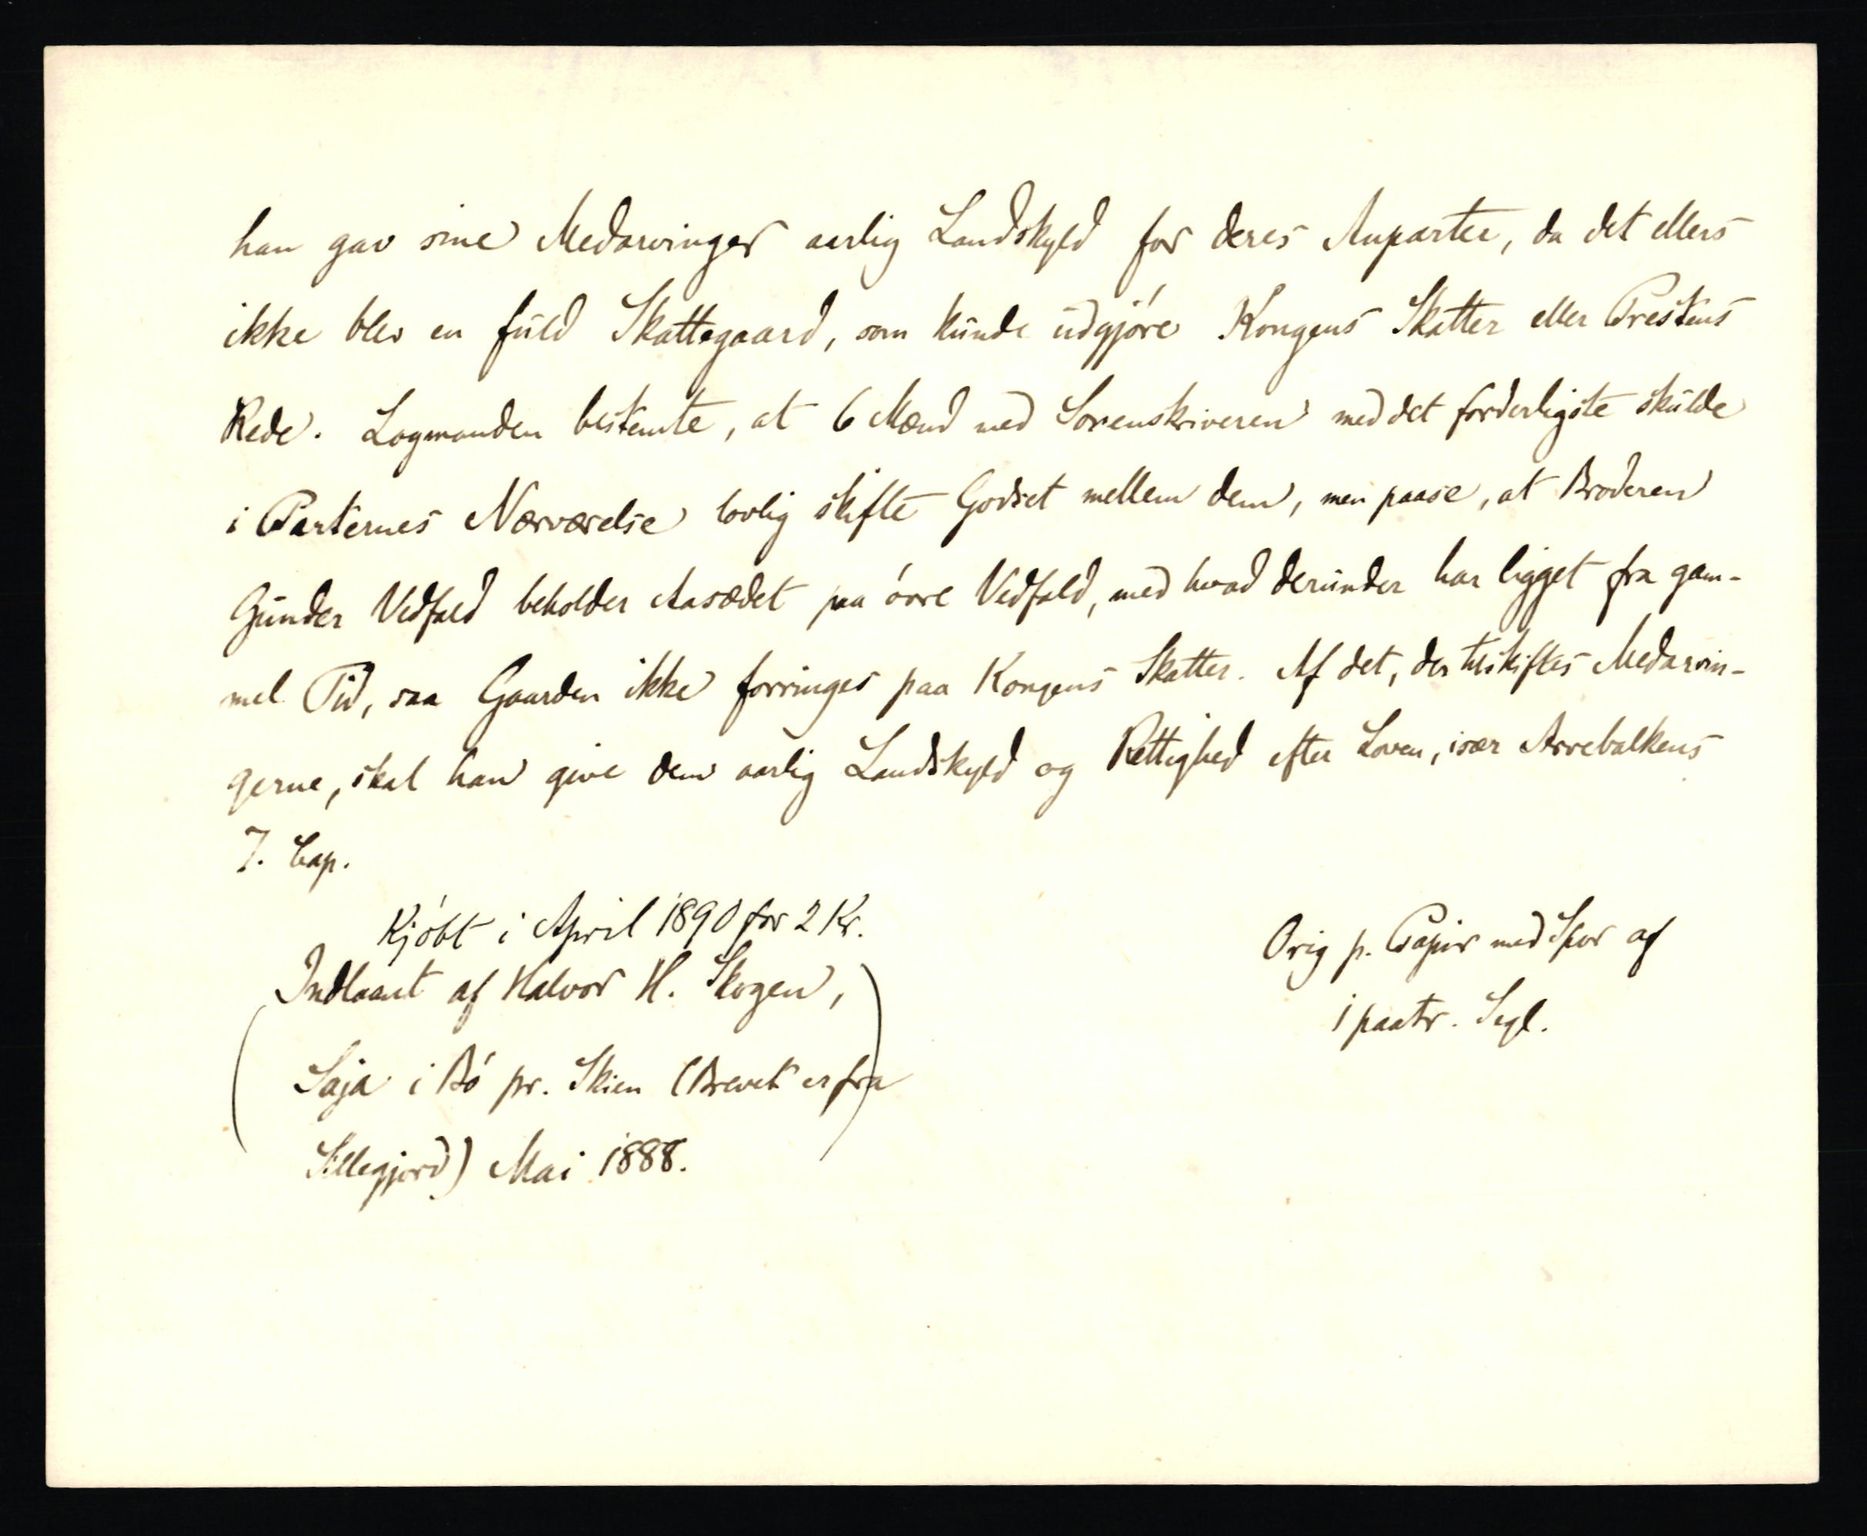 han gav sine Medarvinger aarlig Landskyld for deres Anparter, da det ellers
ikke blev en fuld Skattegaard, som kunde udgjöre Kongens Skatter eller Prestens
Rede. Lagmanden bestemte, at 6 Mænd med Sorenskriveren med det forderligste skulde
i Parternes Nærværelse lovlig skifte Godset mellem dem, men paase, at Broderen
Gunder Vedfald beholder Aasædet paa övre Vedfald, med hvad derunder har ligget fra gam-
mel Tid, saa Gaarden ikke forringes paa Kongens Skatter. Af det, der tilskiftes Medarvin-
gerne, skal han give dem aarlig Landskyld og Rettighed efter Loven, især Arvebalkens
7. Cap.
Kjöbt i April 1890 for 2 Kr.
(Indlaant af Halvor H. Skogen,
i Bö pr. Skien (Brevet er fra
Sillegjord) Mai 1888.)
Orig p. Papir med Spor af
1 paatr. Segl.